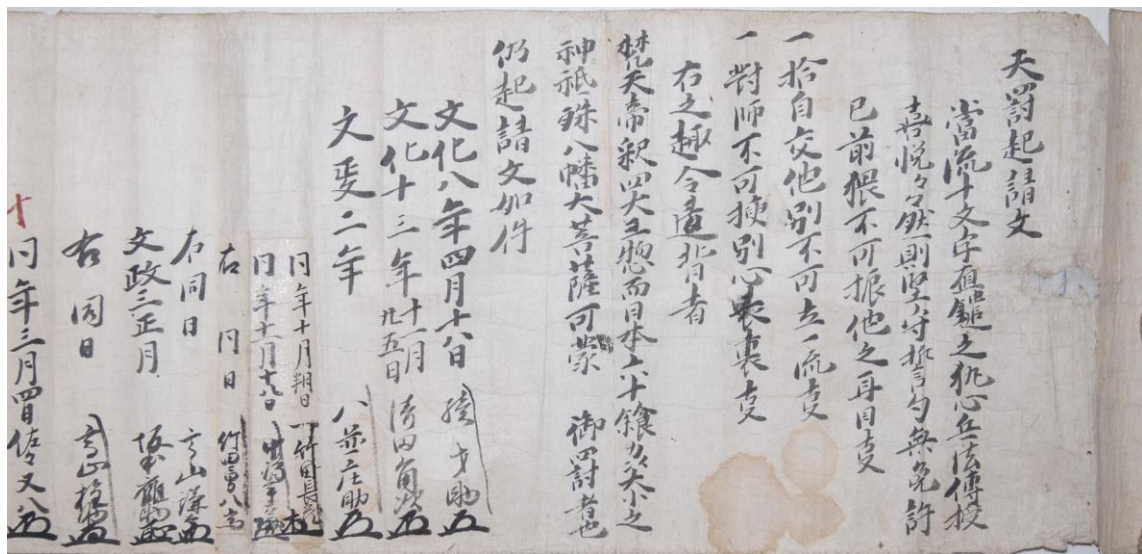 天罸起請文
當流十文字直鎗之執心兵法傳授
喜悦々々然則堅守誓言勺無免許
已前猥不可振他之耳目支
一拾自交他別不可立一流支
一對師不可挾別心表裏支
右之趣令違背者
梵天帝釈四大王惣而日本六十餘州大小之
神祇殊八幡大菩薩可蒙 御罸者也
仍起請文如件
文化八年四月十八日 助
文化十三年十一月廿五日 清田角
文政二年 八並庄助
同年十月朔日 竹田長
同年十一月十八日
右同日 竹田勇八
右同日 高山
文政三正月
右同日 高山
同年三月四日佐々又八